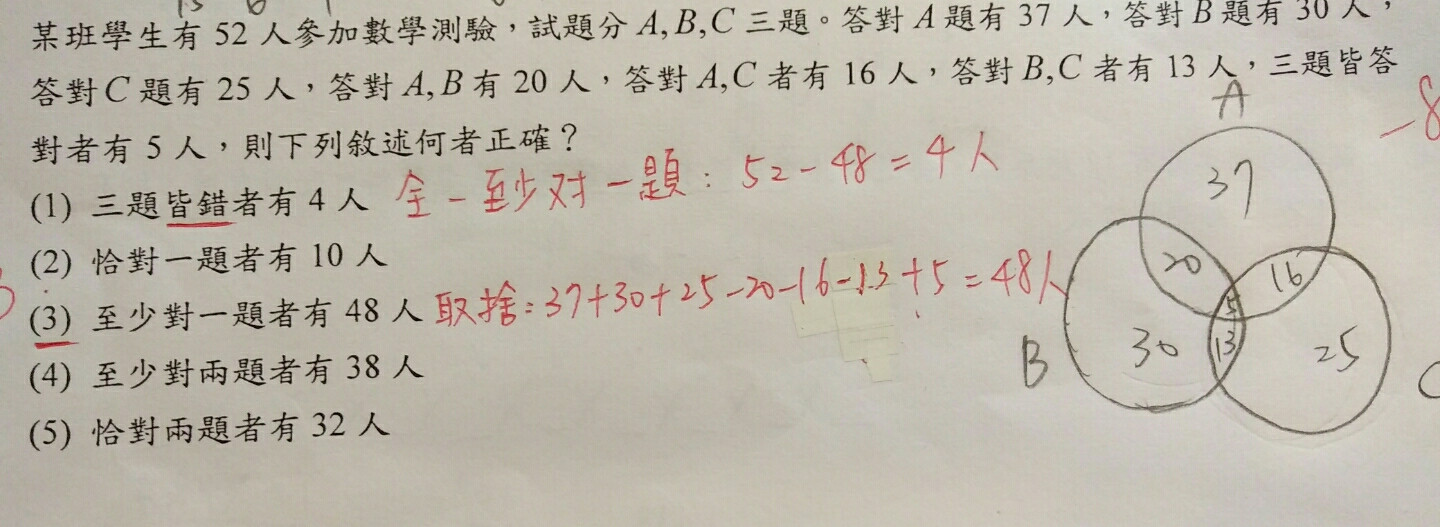 某班學生有 52 人參加數學測驗，試題分 A,B,C 三題。答對 A 題有 37 人，答對 B 題有 30 人，
答對 C 題有 25 人，答對 A,B 有 20 人，答對 A,C 者有 16 人，答對 B,C 者有 13 人，三題皆答
對者有 5 人，則下列敘述何者正確？
(1) 三題皆錯者有 4 人 全－至少对一題：52－48＝4人
(2) 恰對一題者有 10 人
(3) 至少對一題者有 48 人 取捨：37+30+25-20-16-13+5=48人
(4) 至少對兩題者有 38 人
(5) 恰對兩題者有 32 人
A
-8
37
20 16
5
B 30 13 25 C